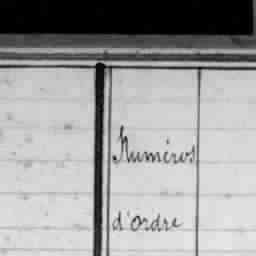 Numéros
d'ordre